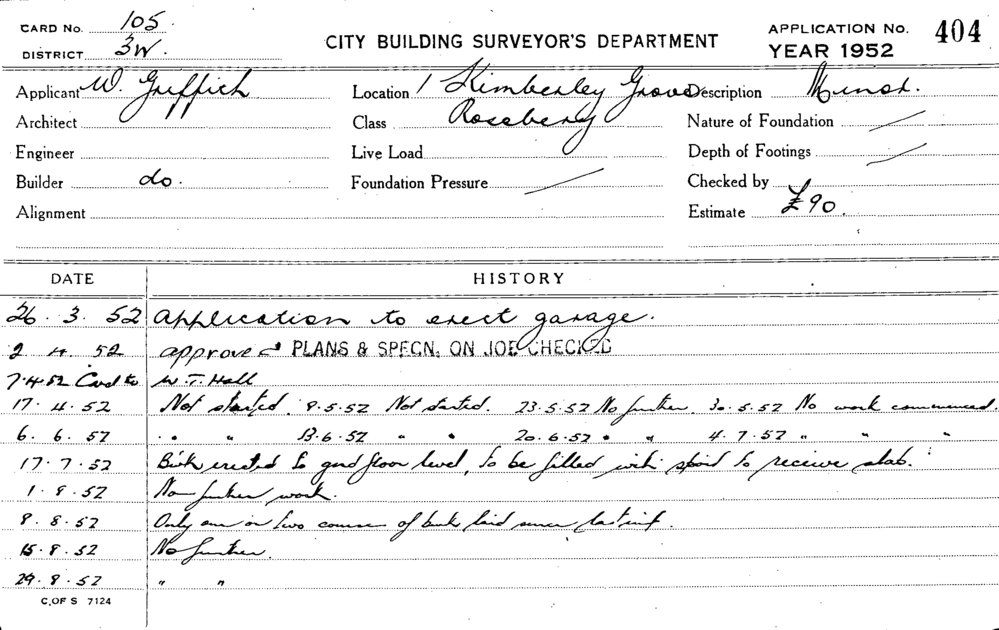 CARD No. 105
DISTRICT 3W.
CITY BUILDING SURVEYOR'S DEPARTMENT
APPLICATION No. 404
YEAR 1952
Applicant W. Griffith Location 1 Kimberley Grove Description Minor.
Architect Class Rosebery Nature of Foundation
Engineer Live Load Depth of Footings
Builder do. Foundation Pressure Checked by
Alignment Estimate £90.
DATE HISTORY
26. 3. 52 Application to erect garage.
2 4. 52 approved PLANS & SPECN. ON JOB CHECKED
7.4.52 Card to W. T. Hall
17. 4. 52 Not started. 9.5.52 Not started. 23.5.52 No further. 30.5.52 No work commenced.
6. 6. 52 " " 13.6.52 " " 20.6.52 " " 4.7.52 " " "
17. 7. 52 Bwk erected to gnd floor level, to be filled with spoil to receive slab.
1. 8. 52 No further work.
8. 8. 52 Only one or two courses of bwk laid since last insp.
15. 8. 52 No further.
29. 8. 52 " "
C. OF S 7124